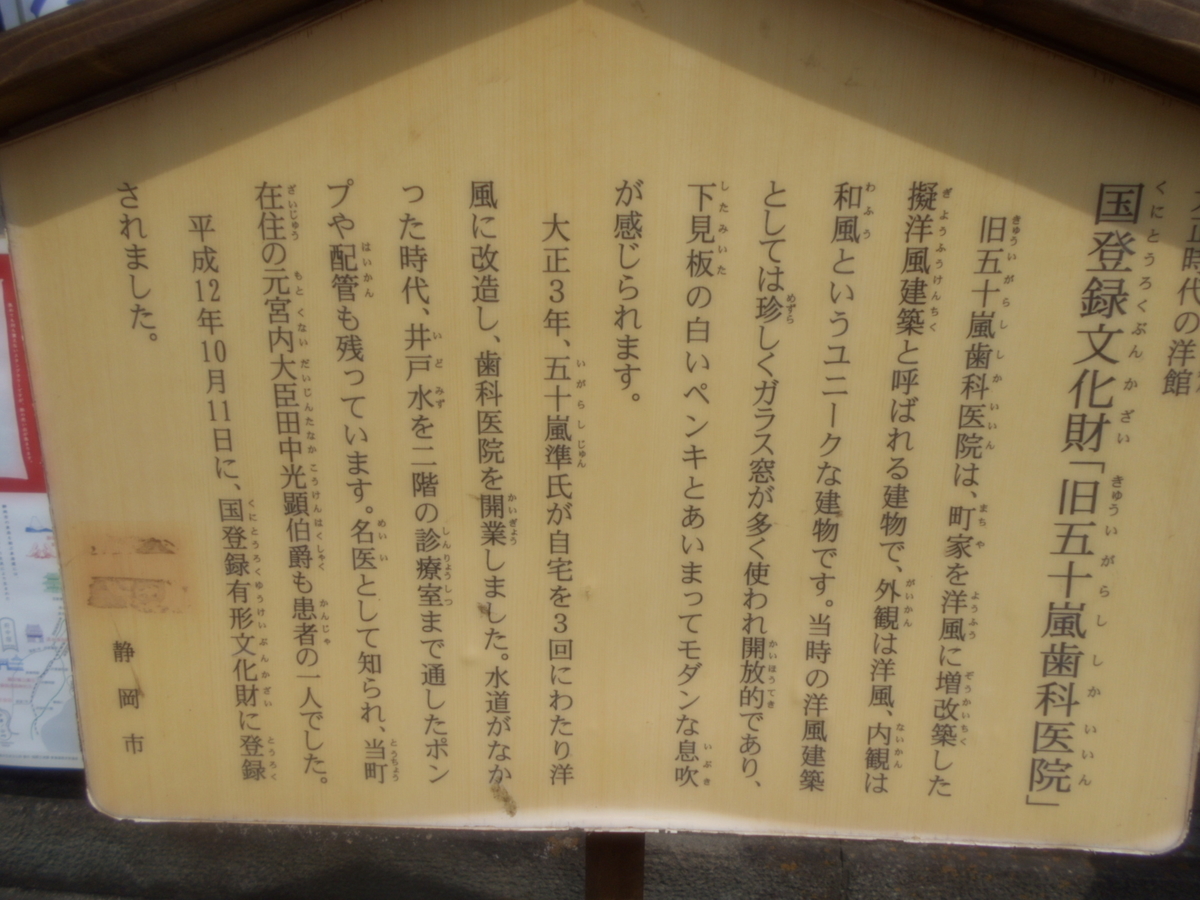 時代の洋館
国登録文化財「旧五十嵐歯科医院」
旧五十嵐歯科医院は、町家を洋風に増改築した
擬洋風建築と呼ばれる建物で、外観は洋風、内観は
和風というユニークな建物です。当時の洋風建築
としては珍しくガラス窓が多く使われ開放的であり、
下見板の白いペンキとあいまってモダンな息吹
が感じられます。
大正3年、五十嵐準氏が自宅を3回にわたり洋
風に改造し、歯科医院を開業しました。水道がなか
った時代、井戸水を二階の診療室まで通したポン
プや配管も残っています。名医として知られ、当町
在住の元宮内大臣田中光顕伯爵も患者の一人でした。
平成12年10月11日に、国登録有形文化財に登録
されました。
静岡市